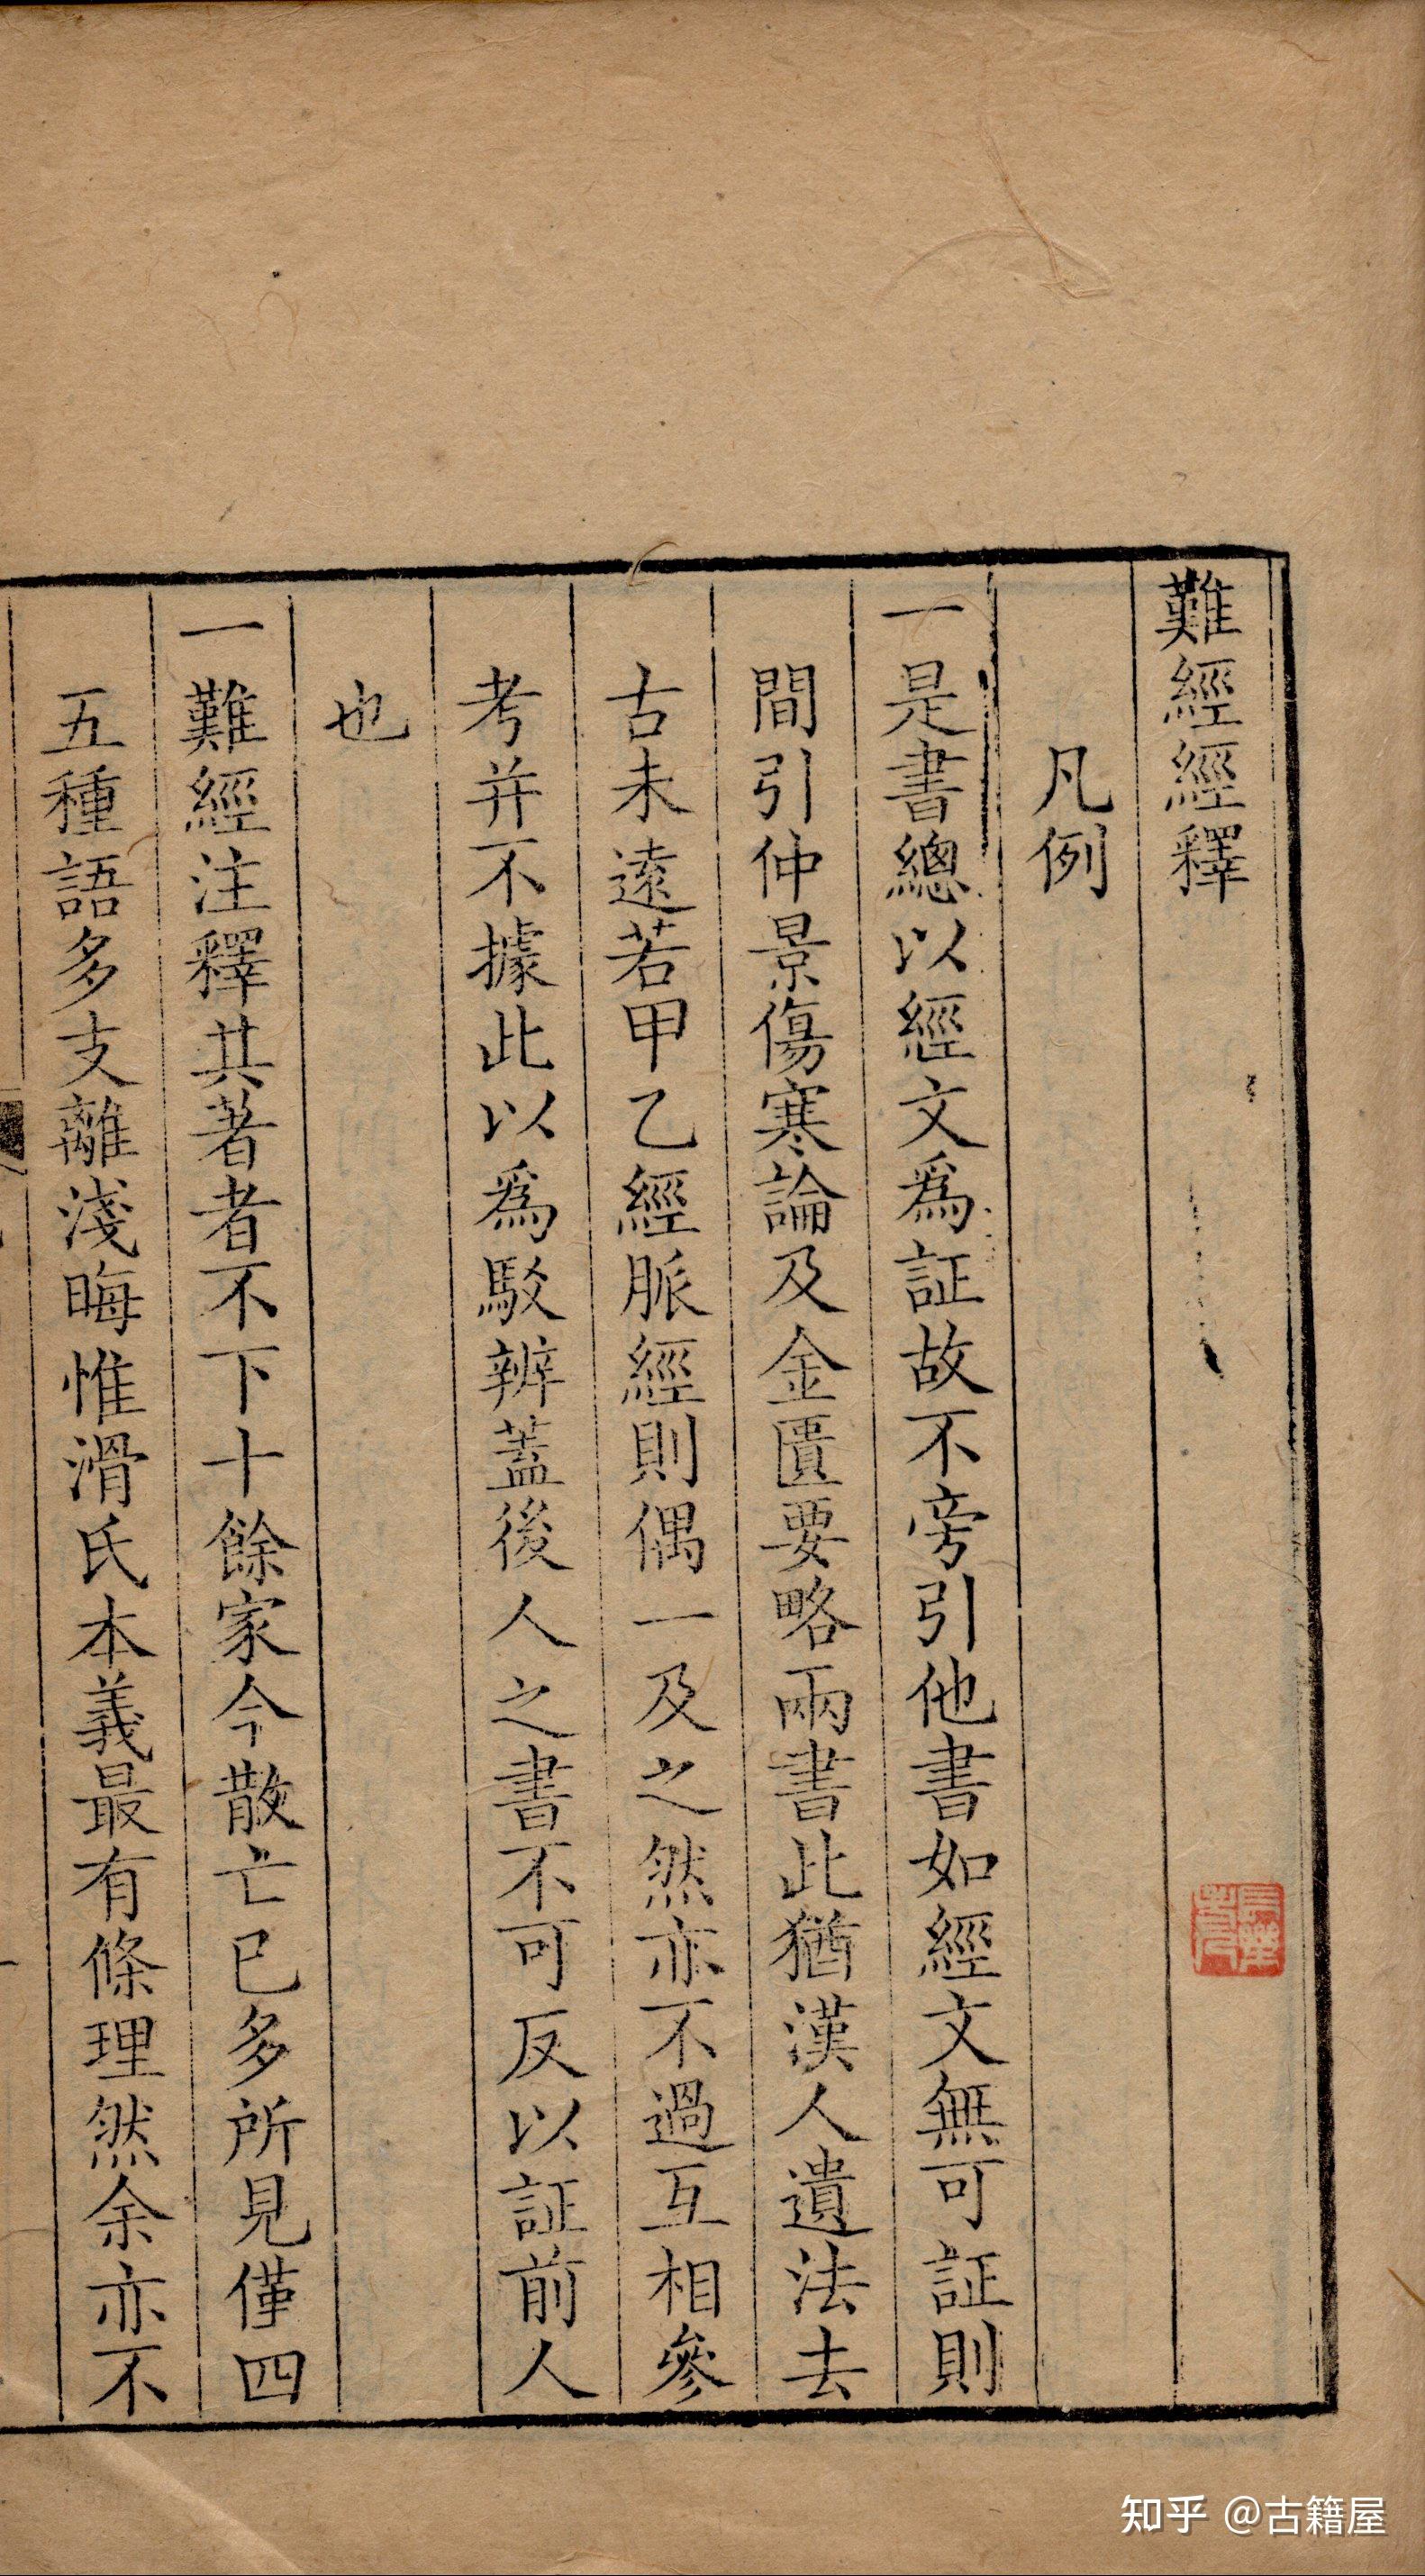 難經經釋
凡例
一是書總以經文爲証故不旁引他書如經文無可証則
間引仲景傷寒論及金匱要略兩書此猶漢人遺法去
古未遠若甲乙經脈經則偶一及之然亦不過互相參
考并不據此以爲駁辨蓋後人之書不可反以証前人
也
一難經注釋其著者不下十餘家今散亡已多所見僅四
五種語多支離淺晦惟滑氏本義最有條理然余亦不
知乎 @古籍屋